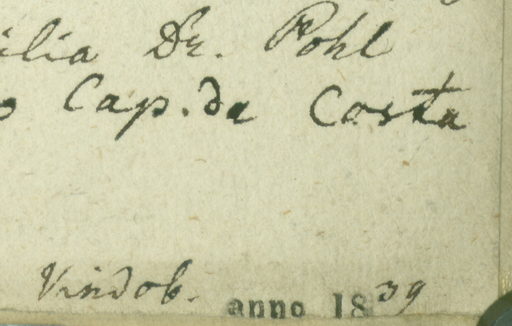 ilia Dr. Pohl
o Cap. da Costa
Vindob. anno 1839